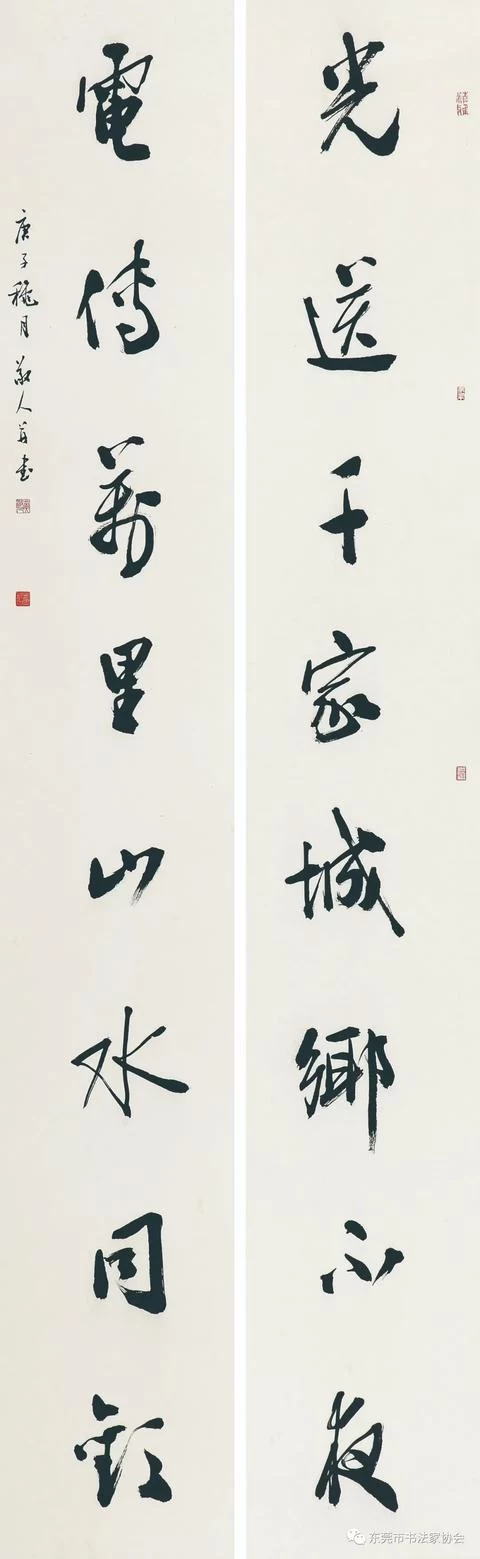 光送千家城鄉不夜
電傳萬里山水同歡
庚子穐月敬人並書
东莞市书法家协会